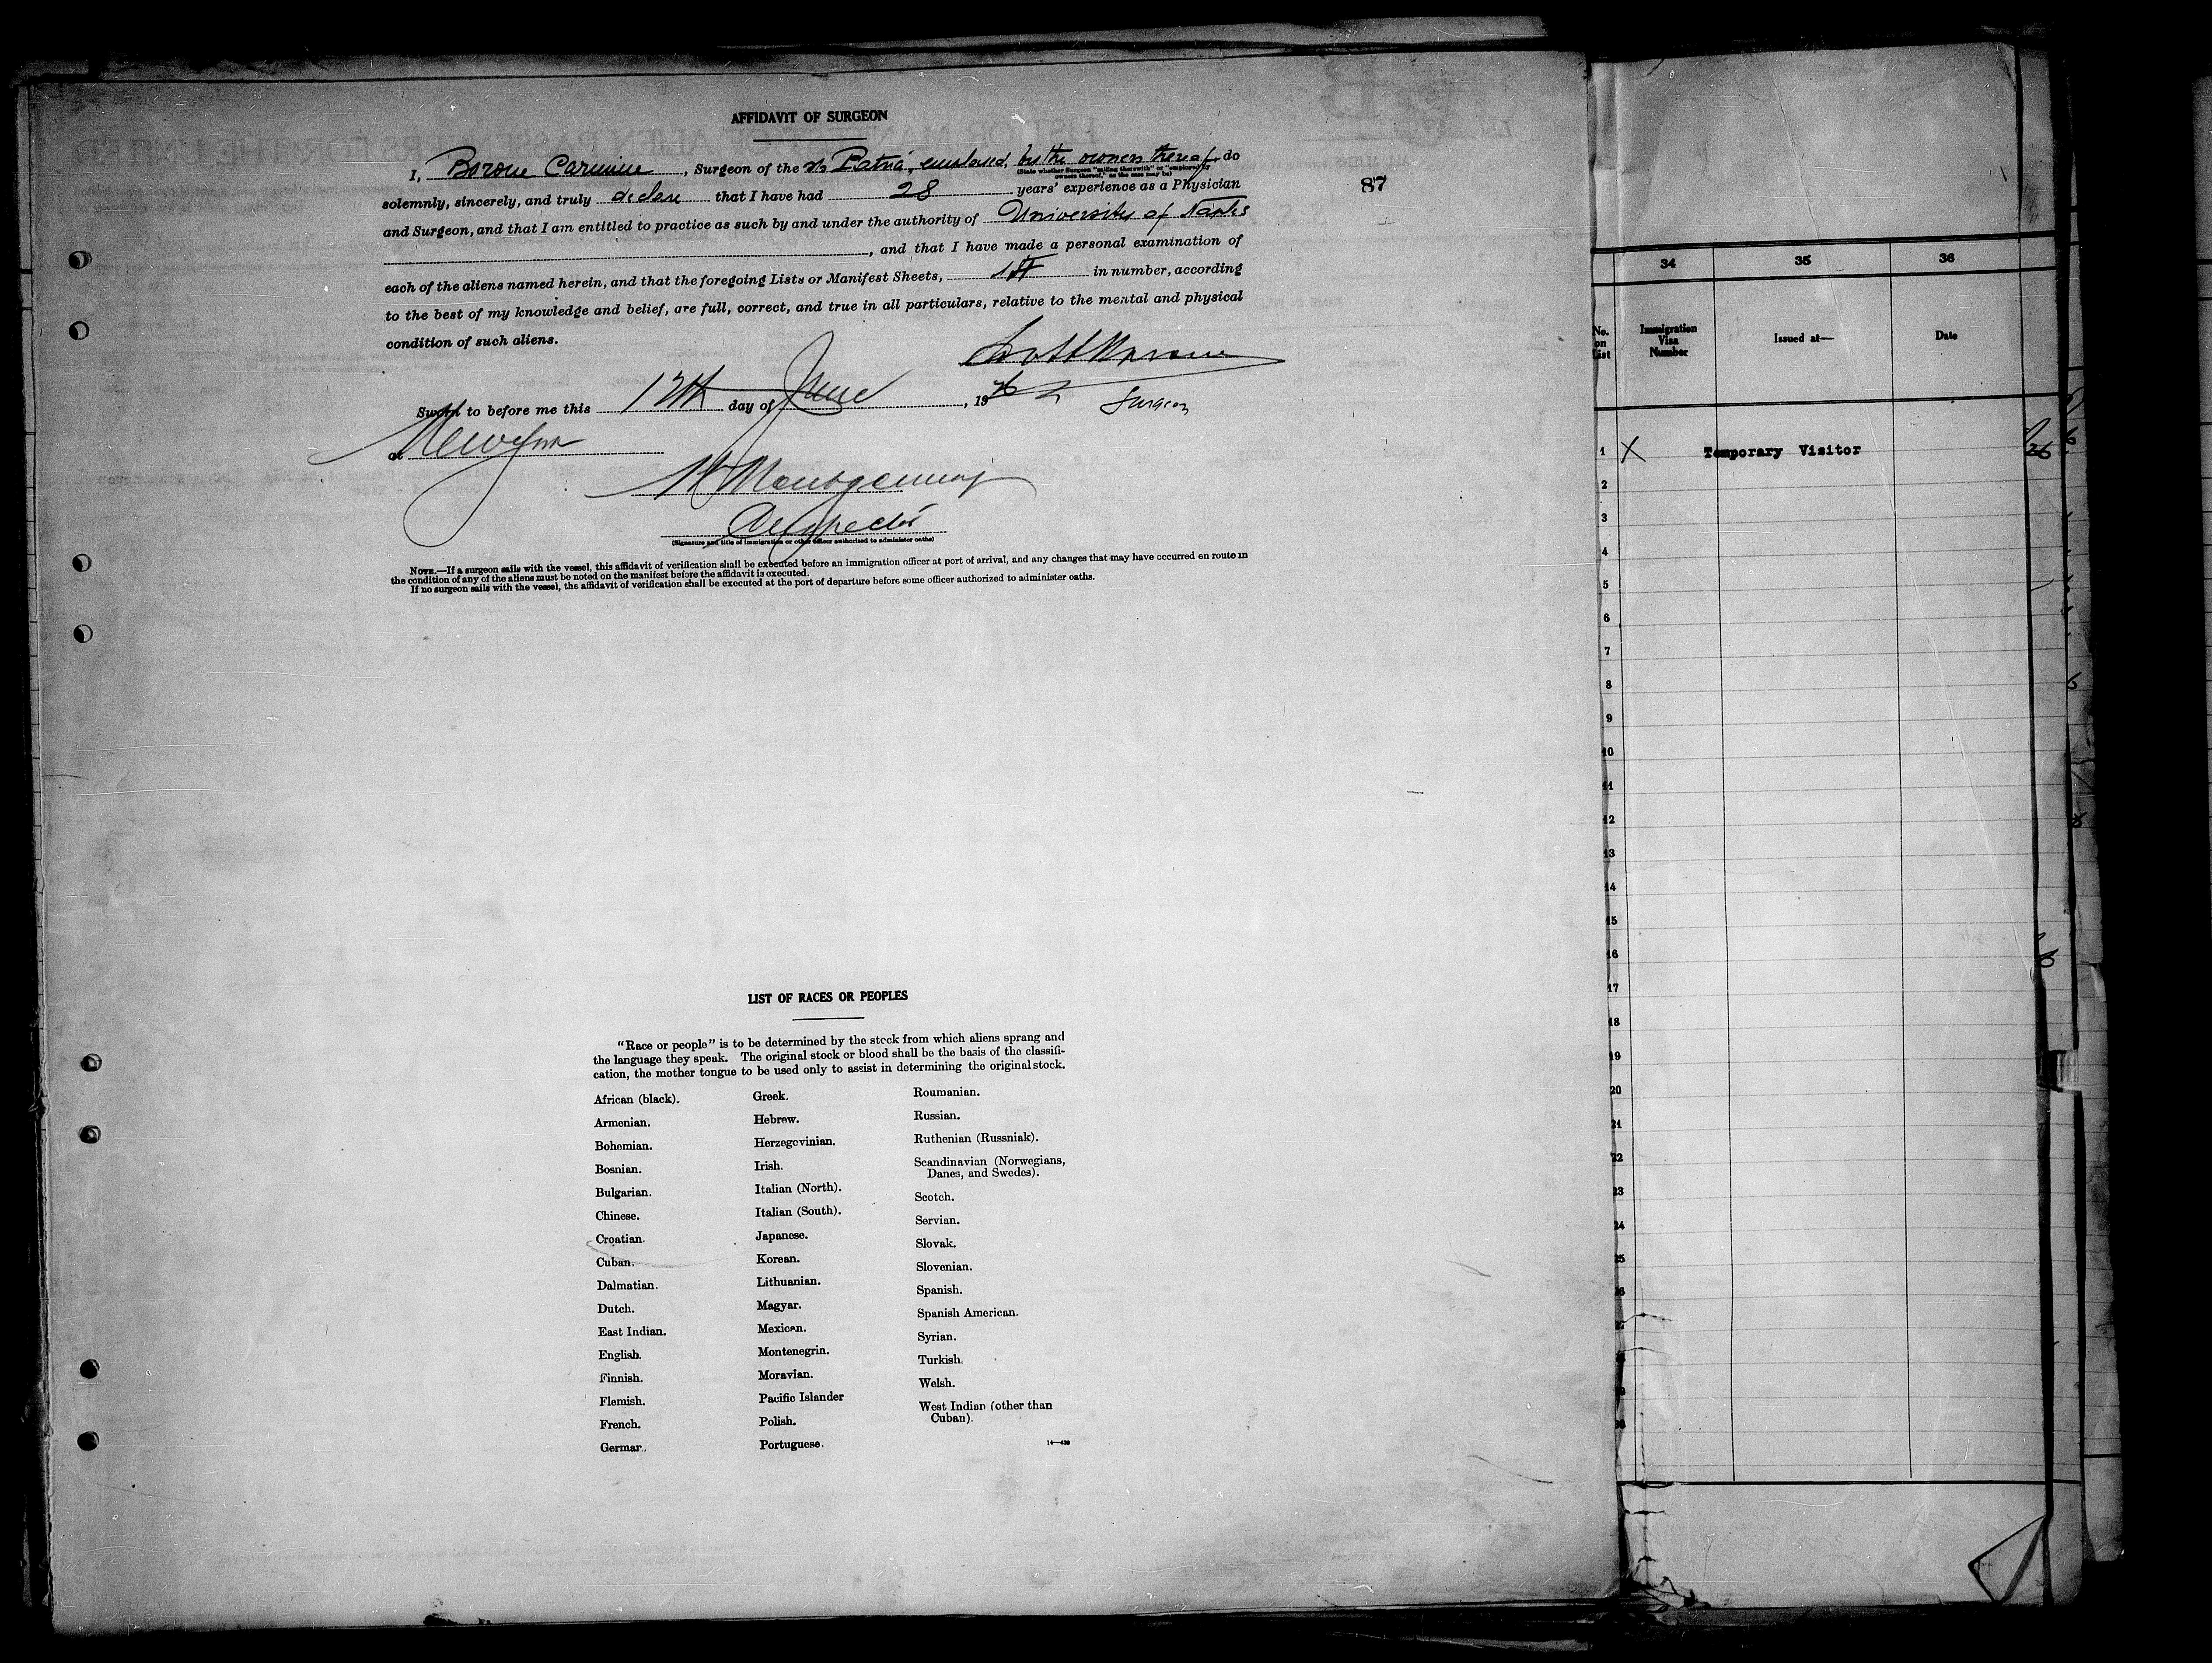 AFFIDAVIT OF SURGEON
I, Borone Carmine, Surgeon of the s/s Patria, employed by the owners thereof, do
(State whether Surgeon "sailing therewith" or "employed by
owners thereof," as the case may be)
87
solemnly, sincerely, and truly declare that I have had 28 years' experience as a Physician
and Surgeon, and that I am entitled to practice as such by and under the authority of University of Naples
, and that I have made a personal examination of
each of the aliens named herein, and that the foregoing Lists or Manifest Sheets, in number, according
to the best of my knowledge and belief, are full, correct, and true in all particulars, relative to the mental and physical
condition of such aliens.
Surgeon
Sworn to before me this 12th day of June, 19
at New York
Montgomery
Inspector
(Signature and title of immigration or other officer authorized to administer oaths)
NOTE.—If a surgeon sails with the vessel, this affidavit of verification shall be executed before an immigration officer at port of arrival, and any changes that may have occurred en route in
the condition of any of the aliens must be noted on the manifest before the affidavit is executed.
If no surgeon sails with the vessel, the affidavit of verification shall be executed at the port of departure before some officer authorized to administer oaths.
LIST OF RACES OR PEOPLES
"Race or people" is to be determined by the stock from which aliens sprang and
the language they speak. The original stock or blood shall be the basis of the classifi-
cation, the mother tongue to be used only to assist in determining the original stock.
African (black).
Armenian.
Bohemian.
Bosnian.
Bulgarian.
Chinese.
Croatian.
Cuban.
Dalmatian.
Dutch.
East Indian.
English.
Finnish.
Flemish.
French.
German.
Greek.
Hebrew.
Herzegovinian.
Irish.
Italian (North).
Italian (South).
Japanese.
Korean.
Lithuanian.
Magyar.
Mexican.
Montenegrin.
Moravian.
Pacific Islander
Polish.
Portuguese.
Roumanian.
Russian.
Ruthenian (Russniak).
Scandinavian (Norwegians,
Danes, and Swedes).
Scotch.
Servian.
Slovak.
Slovenian.
Spanish.
Spanish American.
Syrian.
Turkish.
Welsh.
West Indian (other than
Cuban).
14—430
34 35 36
No.
on
List
Immigration
Visa
Number
Issued at—
Date
1 X Temporary Visitor
2
3
4
5
6
7
8
9
10
11
12
13
14
15
16
17
18
19
20
21
22
23
24
25
26